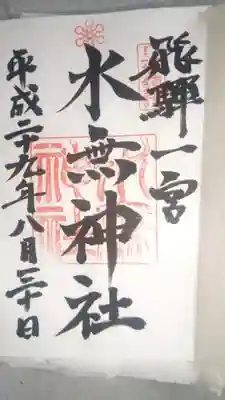 飛騨一宮
水無神社
平成二十九年八月三十日